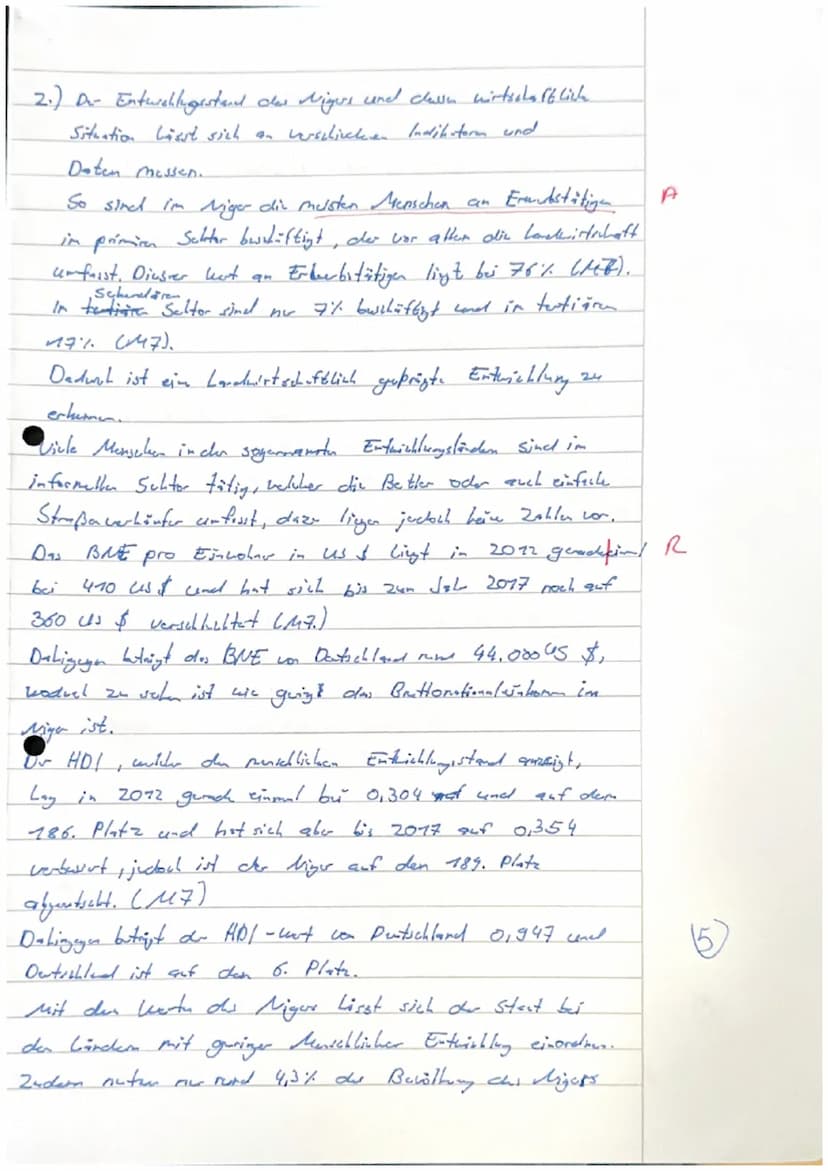 2.) Der Entwicklungsstand des Nigers und dessen wirtschaftliche
Situation lässt sich an verschiedenen Indikatoren und
Daten messen.
So sind im Niger die meisten Menschen an Erwerbstätigen A
im primären Sektor beschäftigt, der vor allem die Landwirtschaft
umfasst. Dieser Wert an Erwerbstätigen liegt bei 76% (M7).
Sekundären
Im tertiären Sektor sind nur 7% beschäftigt und im tertiären
17%. (M7).
Dadurch ist ein Landwirtschaftlich geprägte Entwicklung zu
erkennen.
Viele Menschen in den sogenannten Entwicklungsländern sind im
informellen Sektor tätig, welcher die Bettler oder auch einfache
Straßenverkäufer umfasst, dazu liegen jedoch keine Zahlen vor.
Das BNE pro Einwohner in US $ liegt in 2012 geradeeinmal R
bei 410 US $ und hat sich bis zum Jahr 2017 noch auf
360 US $ verschlechtert (M7.)
Dahingegen beträgt das BNE von Deutschland rund 44.000 US $,
wodurch zu sehen ist wie gering das Bruttonationaleinkommen im
Niger ist.
Der HDI, welcher den menschlichen Entwicklungsstand anzeigt,
Lag in 2012 gerade einmal bei 0,304 und auf dem
186. Platz und hat sich aber bis 2017 auf 0,354
verbessert, jedoch ist der Niger auf den 189. Platz
abgerutscht. (M7)
Dahingegen beträgt der HDI-Wert von Deutschland 0,947 und 5
Deutschland ist auf den 6. Platz.
Mit den Werten des Nigers lässt sich der Staat bei
den Ländern mit geringer Menschlicher Entwicklung einordnen.
Zudem nutzen nur rund 4,3% der Bevölkerung des Nigers